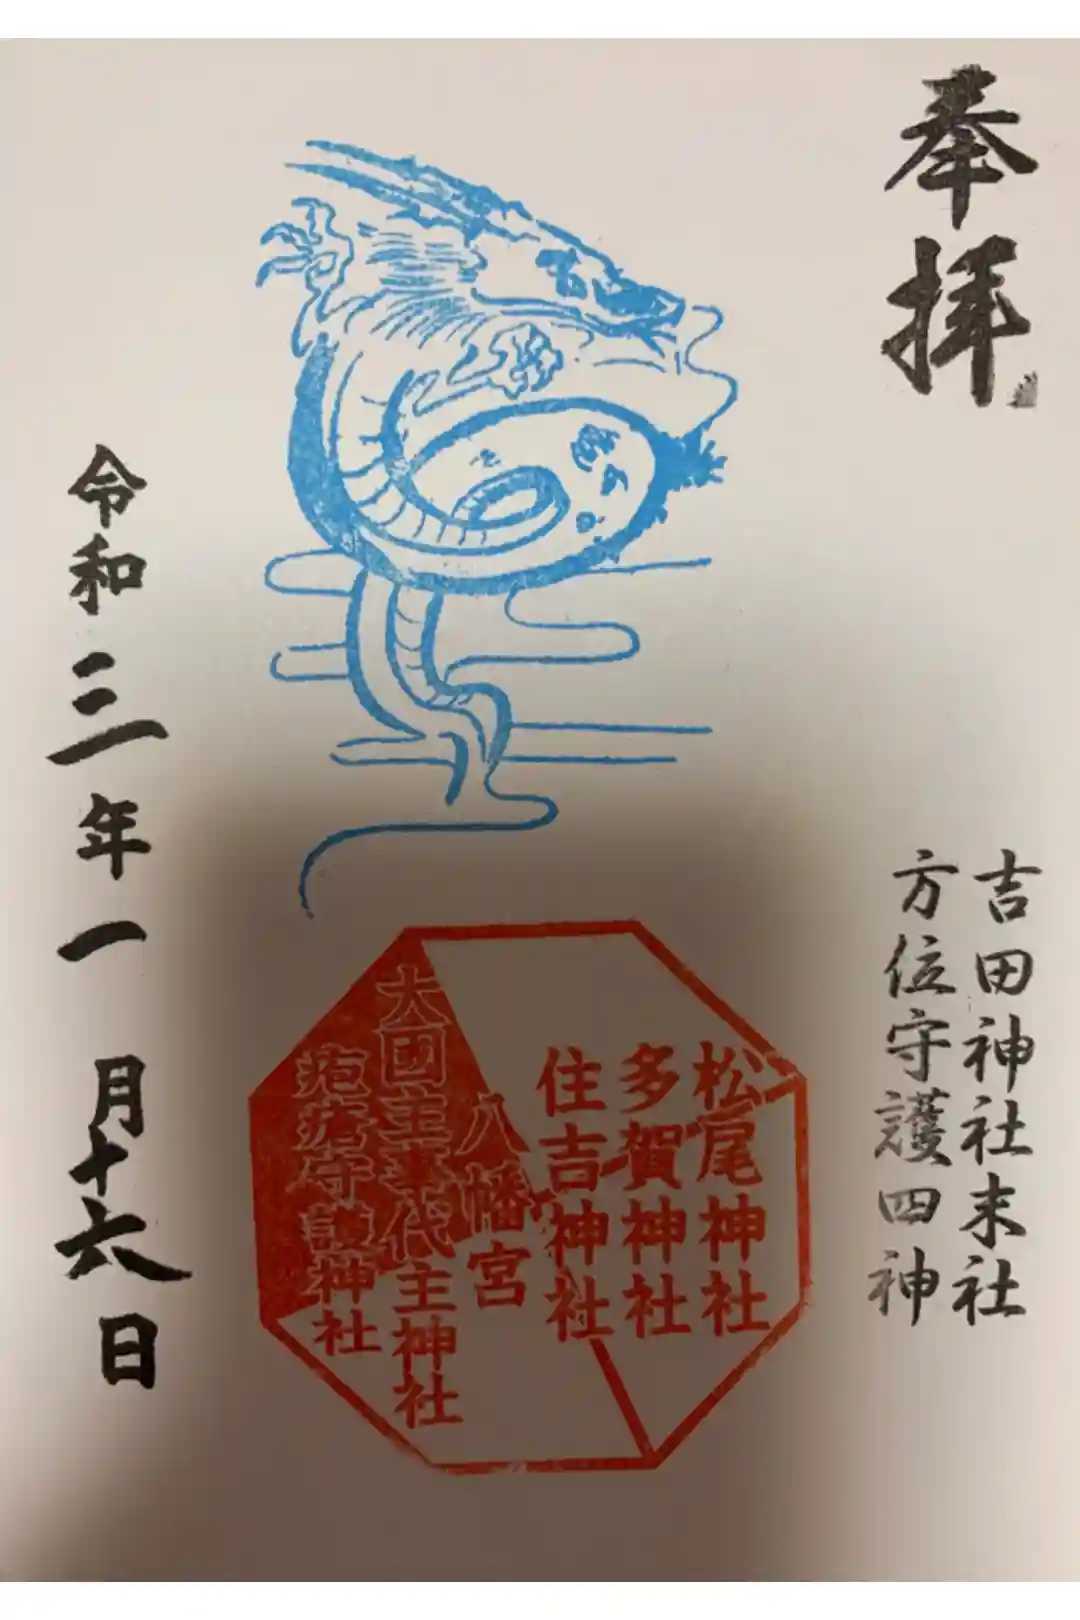 奉拝
吉田神社末社
方位守護四神
松尾神社
多賀神社
住吉神社
八幡宮
大國主事代主神社
疱瘡守護神社
令和三年一月十六日